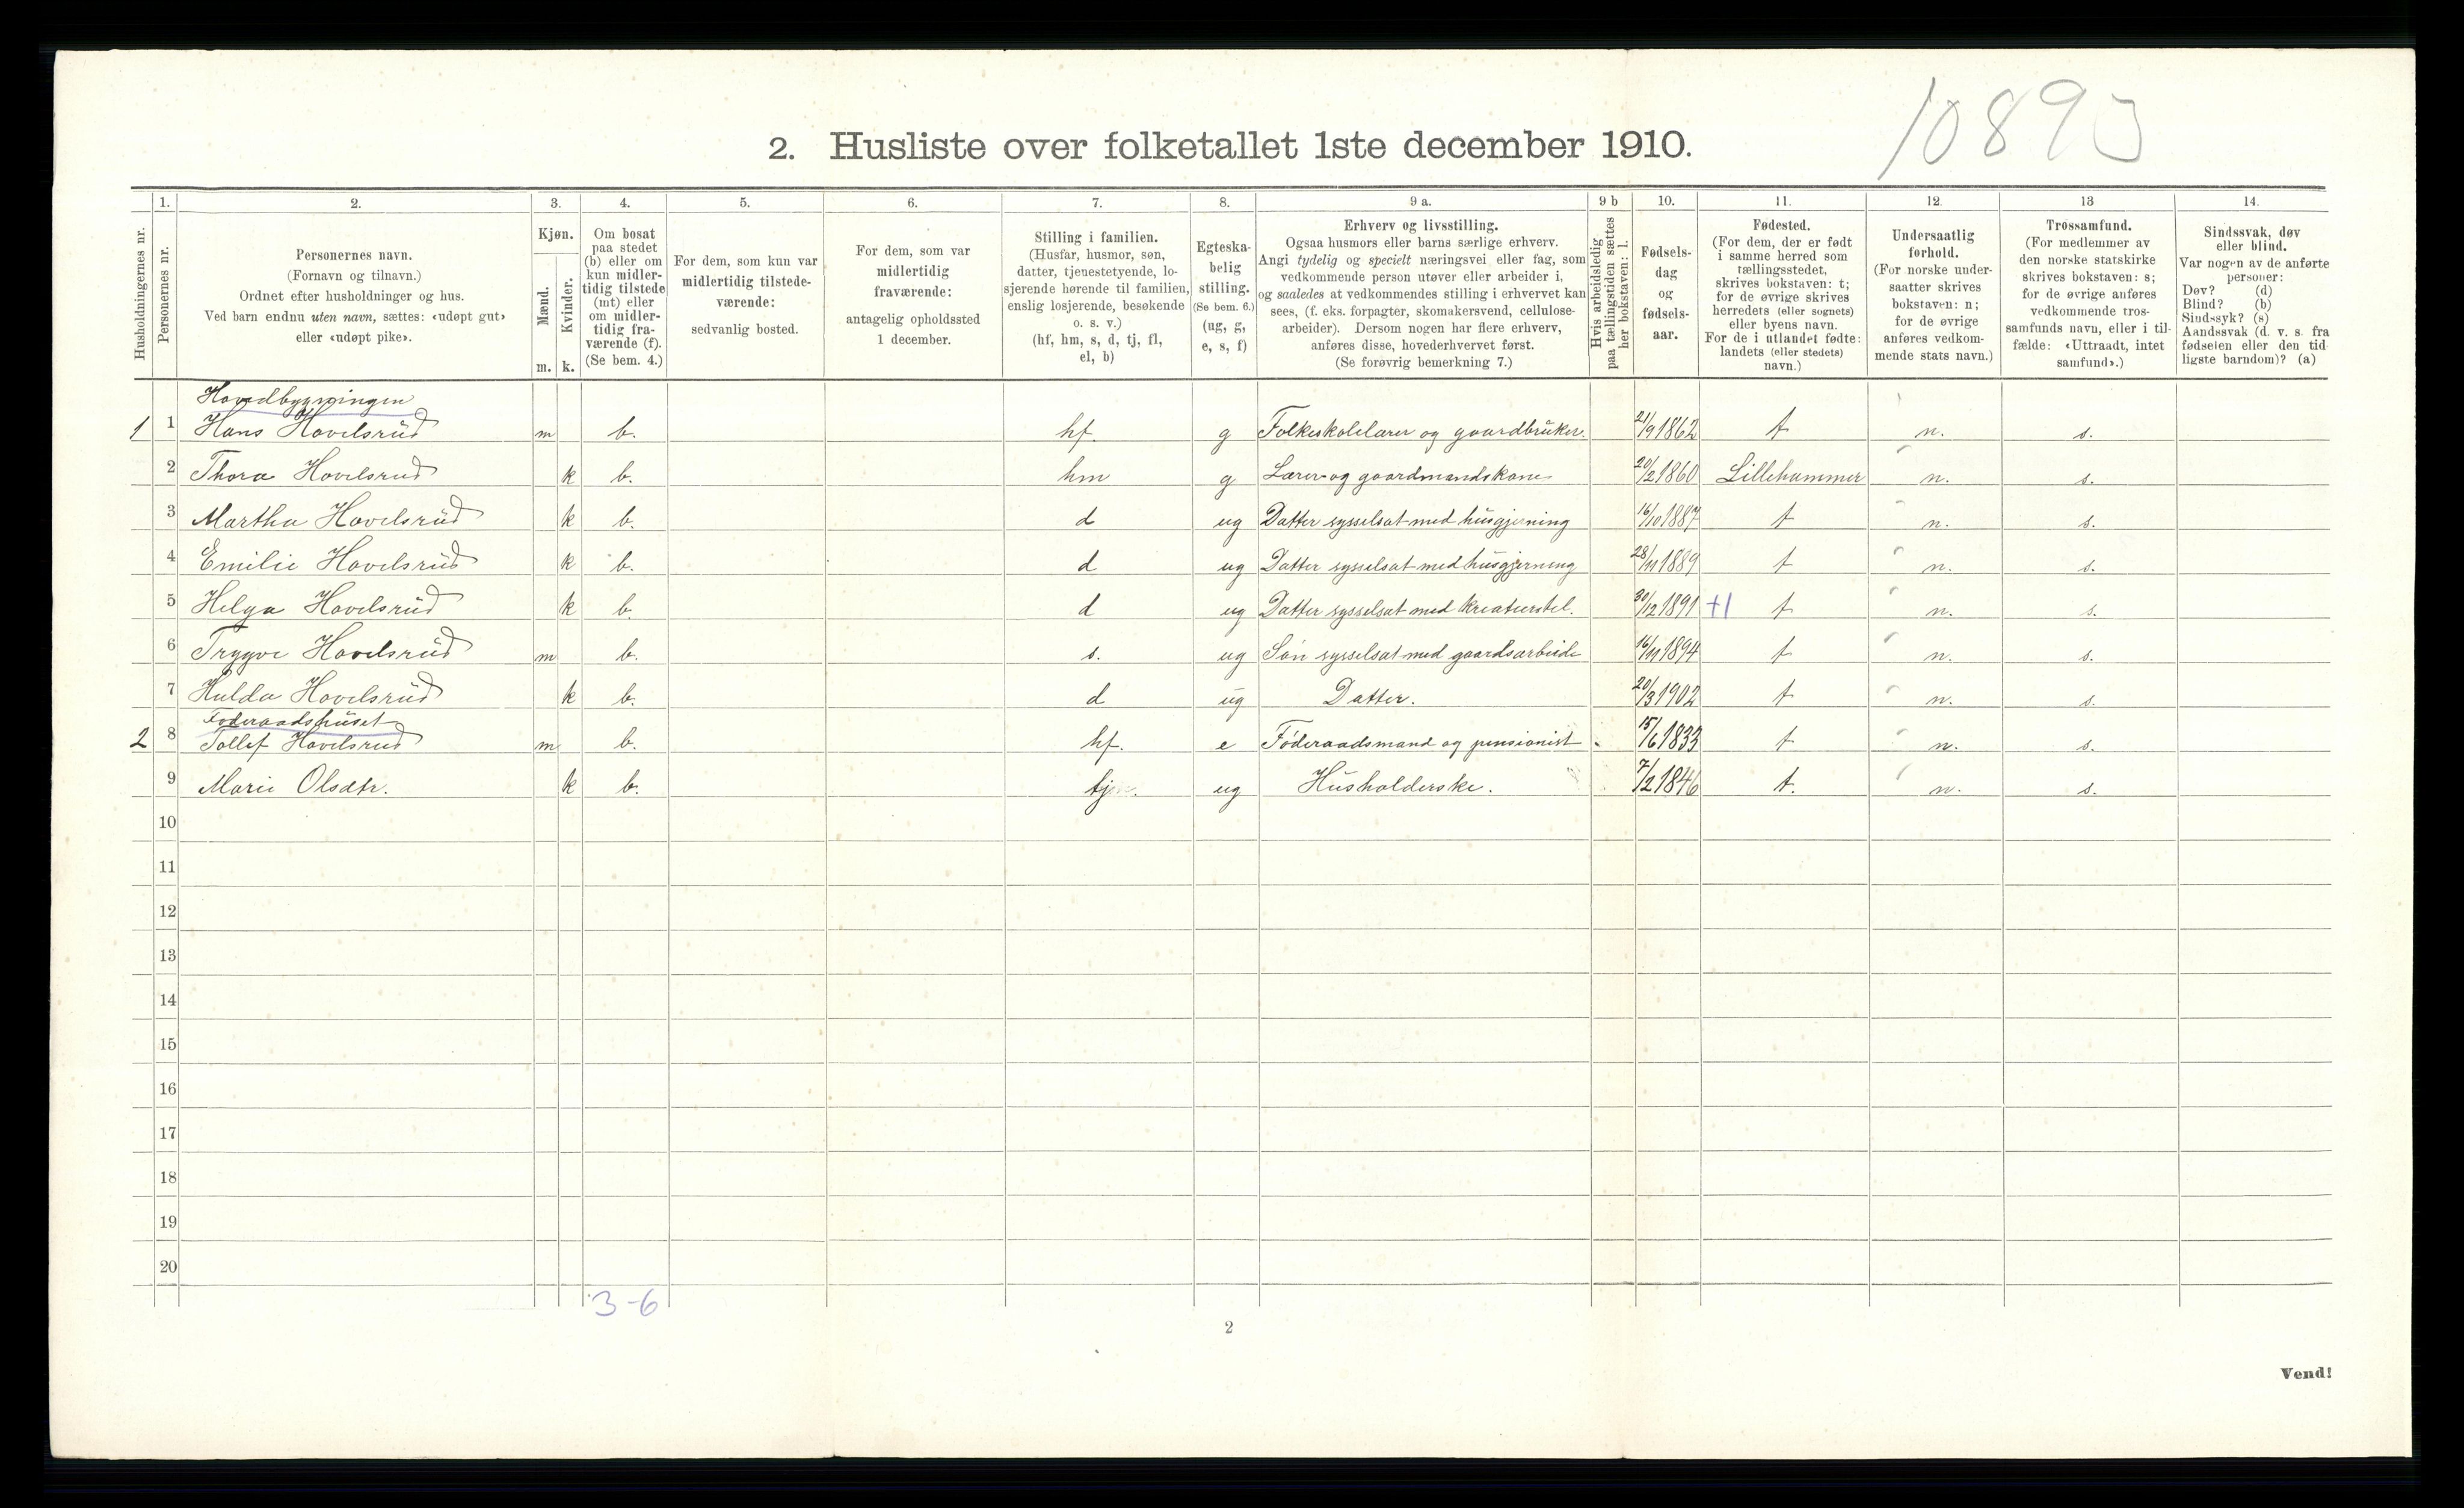 10893
2. Husliste over folketallet 1ste december 1910.
1. 2. 3. 4. 5. 6. 7. 8. 9 a. 9 b 10. 11. 12. 13 14.
Husholdningernes nr.
Personernes nr.
Personernes navn.
(Fornavn og tilnavn.)
Ordnet efter husholdninger og hus.
Ved barn endnu uten navn, sættes: «udøpt gut»
eller «udøpt pike».
Kjøn.
Mænd.
Kvinder.
m. k.
Om bosat
paa stedet
(b) eller om
kun midler-
tidig tilstede
(mt) eller
om midler-
tidig fra-
værende (f).
(Se bem. 4.)
For dem, som kun var
midlertidig tilstede-
værende:
sedvanlig bosted.
For dem, som var
midlertidig
fraværende:
antagelig opholdssted
1 december.
Stilling i familien.
(Husfar, husmor, søn,
datter, tjenestetyende, lo-
sjerende hørende til familien,
enslig losjerende, besøkende
o. s. v.)
(hf, hm, s, d, tj, fl,
el, b)
Egteska-
belig
stilling.
(Se bem. 6.)
(ug, g,
e, s, f)
Erhverv og livsstilling.
Ogsaa husmors eller barns særlige erhverv.
Angi tydelig og specielt næringsvei eller fag, som
vedkommende person utøver eller arbeider i,
og saaledes at vedkommendes stilling i erhvervet kan
sees, (f. eks. forpagter, skomakersvend, cellulose-
arbeider). Dersom nogen har flere erhverv,
anføres disse, hovederhvervet først.
(Se forøvrig bemerkning 7.)
Hvis arbeidsledig
paa tællingstiden sættes
her bokstaven: l.
Fødsels-
dag
og
fødsels-
aar.
Fødested.
(For dem, der er født
i samme herred som
tællingsstedet,
skrives bokstaven: t;
for de øvrige skrives
herredets (eller sognets)
eller byens navn.
For de i utlandet fødte:
landets (eller stedets)
navn.)
Undersaatlig
forhold.
(For norske under-
saatter skrives
bokstaven: n;
for de øvrige
anføres vedkom-
mende stats navn.)
Trossamfund.
(For medlemmer av
den norske statskirke
skrives bokstaven: s;
for de øvrige anføres
vedkommende tros-
samfunds navn, eller i til-
fælde: «Uttraadt, intet
samfund».)
Sindssvak, døv
eller blind.
Var nogen av de anførte
personer:
Døv? (d)
Blind? (b)
Sindssyk? (s)
Aandssvak (d. v. s. fra
fødselen eller den tid-
ligste barndom)? (a)
Hovedbygningen
1 1 Hans Hovelsrud m b. hf. g Folkeskolelærer og gaardbruker. 21/9 1862 t n. s.
2 Thora Hovelsrud k b. hm g Lærer- og gaardmandskone 20/2 1860 Lillehammer n. s.
3 Martha Hovelsrud k b. d ug Datter sysselsat med husgjerning 16/10 1887 t n. s.
4 Emilie Hovelsrud k b. d ug Datter sysselsat med husgjerning 28/11 1889 t n. s.
5 Helga Hovelsrud k b. d ug Datter sysselsat med kreaturstel. 30/12 1891 +1 t n. s.
6 Trygve Hovelsrud m b. s. ug Søn sysselsat med gaardsarbeide 16/11 1894 t n. s.
7 Hulda Hovelsrud k b. d ug Datter. 20/3 1902 t n. s.
Føderaadshuset
2 8 Tollef Hovelsrud m b. hf. e Føderaadsmand og pensionist 15/6 1833 t n. s.
9 Marie Olsdtr. k b. tj ug Husholderske. 7/2 1846 t. n. s.
10
11
12
13
14
15
16
17
18
19
20
3-6
2
Vend!